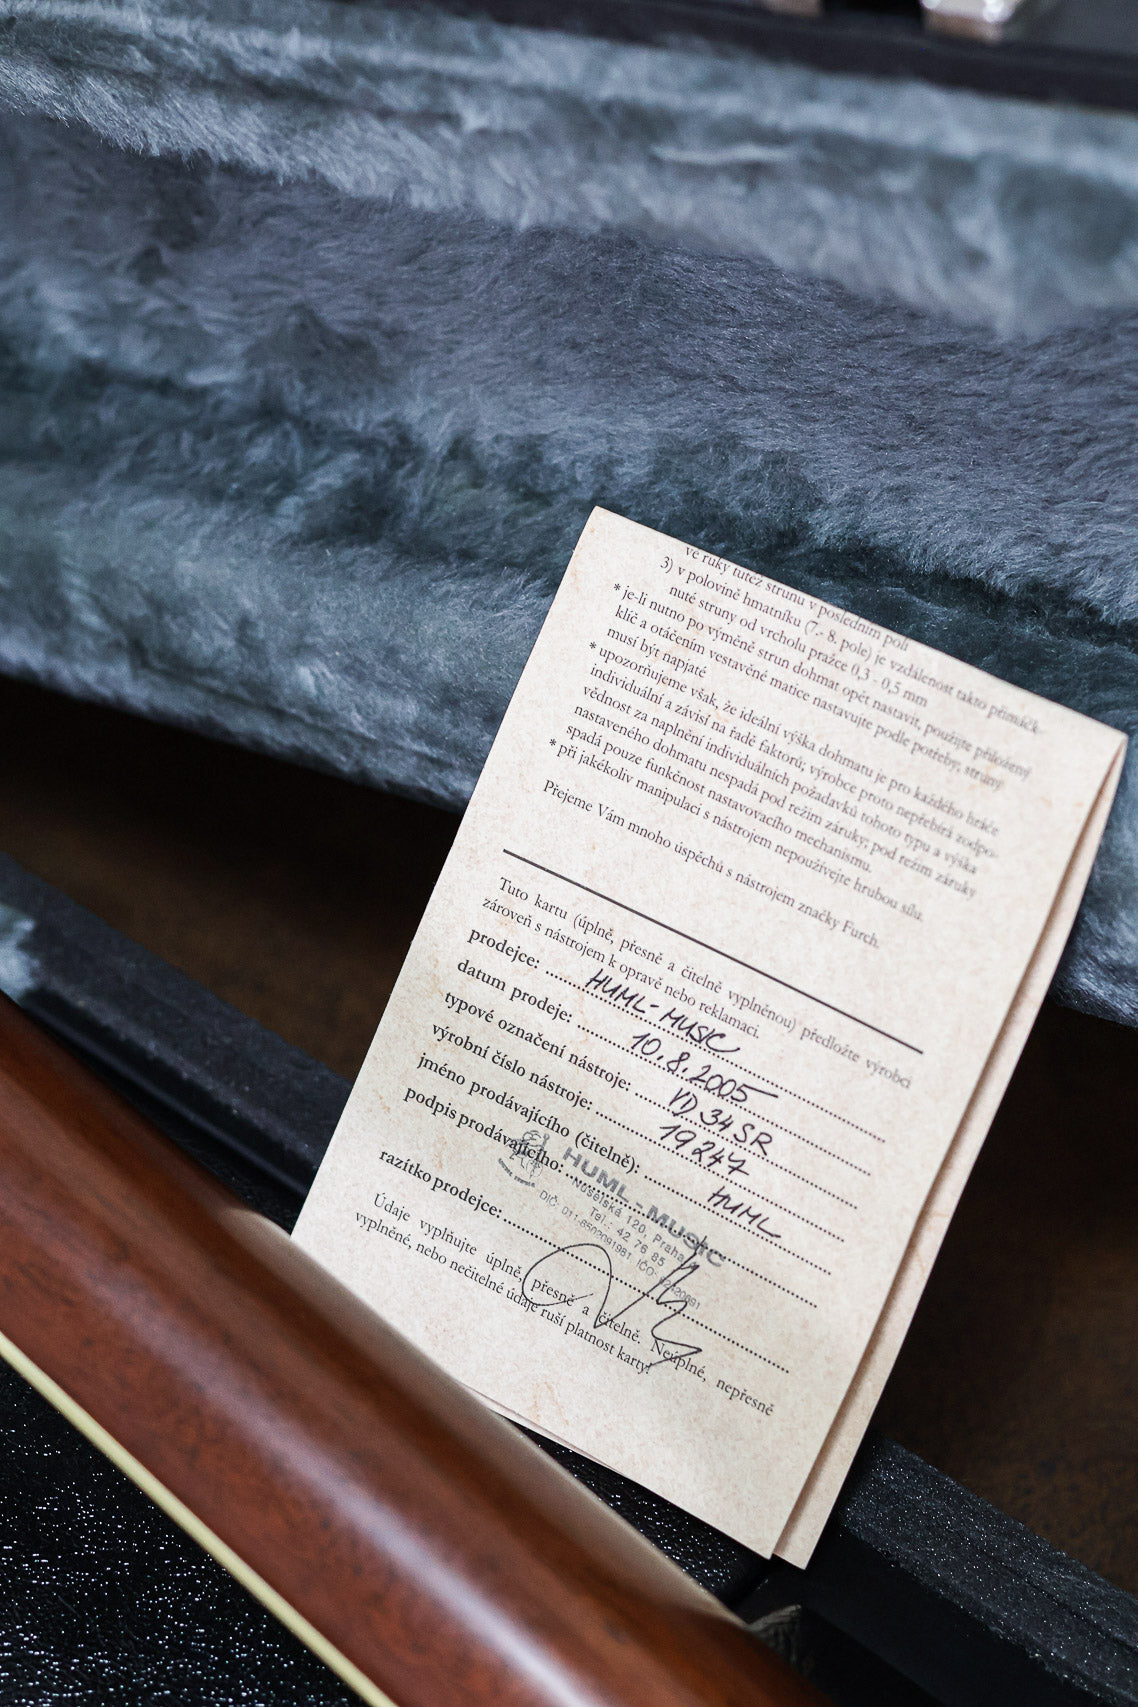 vé ruky tutéž strunu v posledním poli
3) v polovině hmatníku (7.- 8. pole) je vzdálenost takto přimáčk-
nuté struny od vrcholu pražce 0,3 - 0,5 mm
* je-li nutno po výměně strun dohmat opět nastavit, použijte přiložený
klíč a otáčením vestavěné matice nastavujte podle potřeby; struny
musí být napjaté
* upozorňujeme však, že ideální výška dohmatu je pro každého hráče
individuální a závisí na řadě faktorů; výrobce proto nepřebírá zodpo-
vědnost za naplnění individuálních požadavků tohoto typu a výška
nastaveného dohmatu nespadá pod režim záruky; pod režim záruky
spadá pouze funkčnost nastavovacího mechanismu.
* při jakékoliv manipulaci s nástrojem nepoužívejte hrubou sílu.
Přejeme Vám mnoho úspěchů s nástrojem značky Furch.
Tuto kartu (úplně, přesně a čitelně vyplněnou) předložte výrobci
zároveň s nástrojem k opravě nebo reklamaci.
prodejce: HUML-MUSIC
datum prodeje: 10.8.2005
typové označení nástroje: VD 34 SR
výrobní číslo nástroje: 19247
jméno prodávajícího (čitelně): HUML
podpis prodávajícího:
razítko prodejce:
HUML-MUSIC
Nuselská 120, Praha 4
Tel.: 42 76 85
DIČ: 011-8502091981 IČO:
Údaje vyplňujte úplně, přesně a čitelně. Neúplné, nepřesně
vyplněné, nebo nečitelné údaje ruší platnost karty!